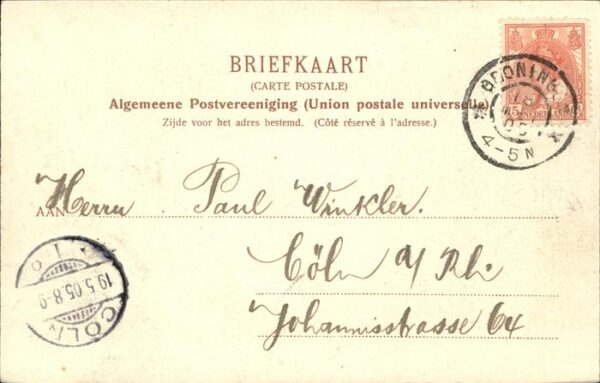 BRIEFKAART
(CARTE POSTALE)
Algemeene Postvereeniging (Union postale universelle)
Zijde voor het adres bestemd. (Côté réservé à l'adresse.)
NEDERLAND
GRONING
18
05
4-5 N
AAN Herrn Paul Winkler.
Cöln a/Rh.
Johannisstrasse 64
19.5.05.8-9
CÖLN